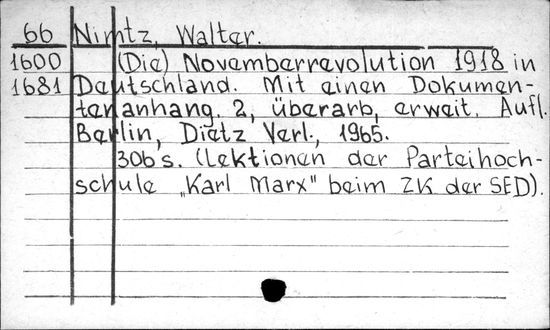 66 Nimtz, Walter.
1600 (Die) Novemberrevolution 1918 in
1681 Deutschland. Mit einen Dokumen-
tenanhang. 2, überarb, erweit. Aufl.
Berlin, Dietz Verl., 1965.
306 s. (Lektionen der Parteihoch-
schule „Karl Marx” beim ZK der SED).